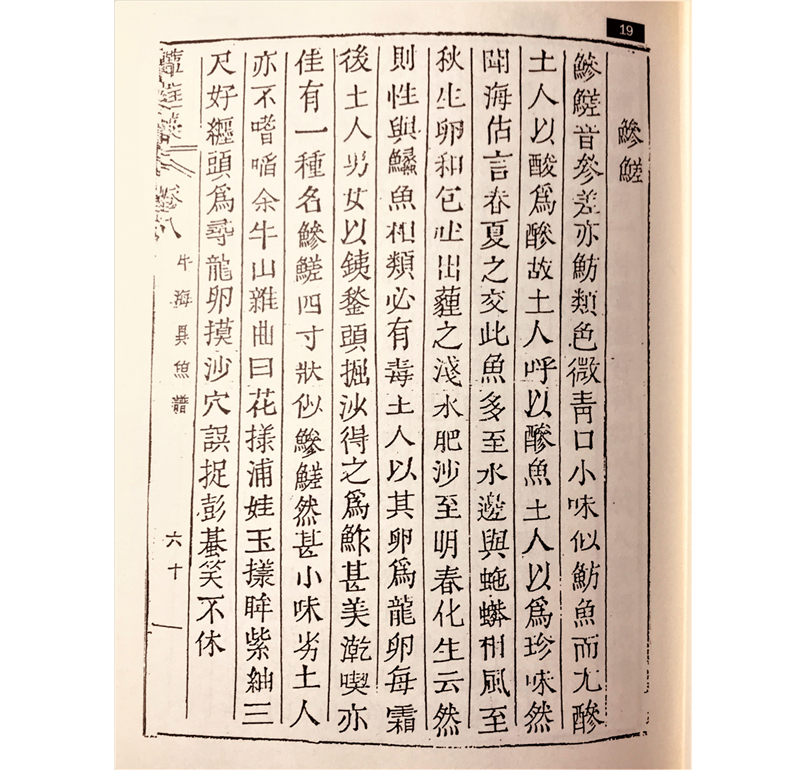 19
鰺䱹
鰺䱹音參差亦魴類色微靑口小味似魴魚而尤醦
土人以酸爲醦故土人呼以醦魚土人以爲珍味然
聞海估言春夏之交此魚多至水邊與虵蟒相風至
秋生卵和包吐出薶之淺水肥沙至明春化生云然
則性與鱺魚相類必有毒土人以其卵爲龍卵每霜
後土人男女以銕鍫頭掘沙得之爲鮓甚美乾喫亦
佳有一種名鰺䱹四寸狀似鰺䱹然甚小味劣土人
亦不嗜㗖余牛山雜曲曰花㨾浦娃玉㨾眸紫紬三
尺好纒頭爲尋龍卵摸沙穴誤捉彭蜞笑不休
卷八 牛海異魚譜 六十